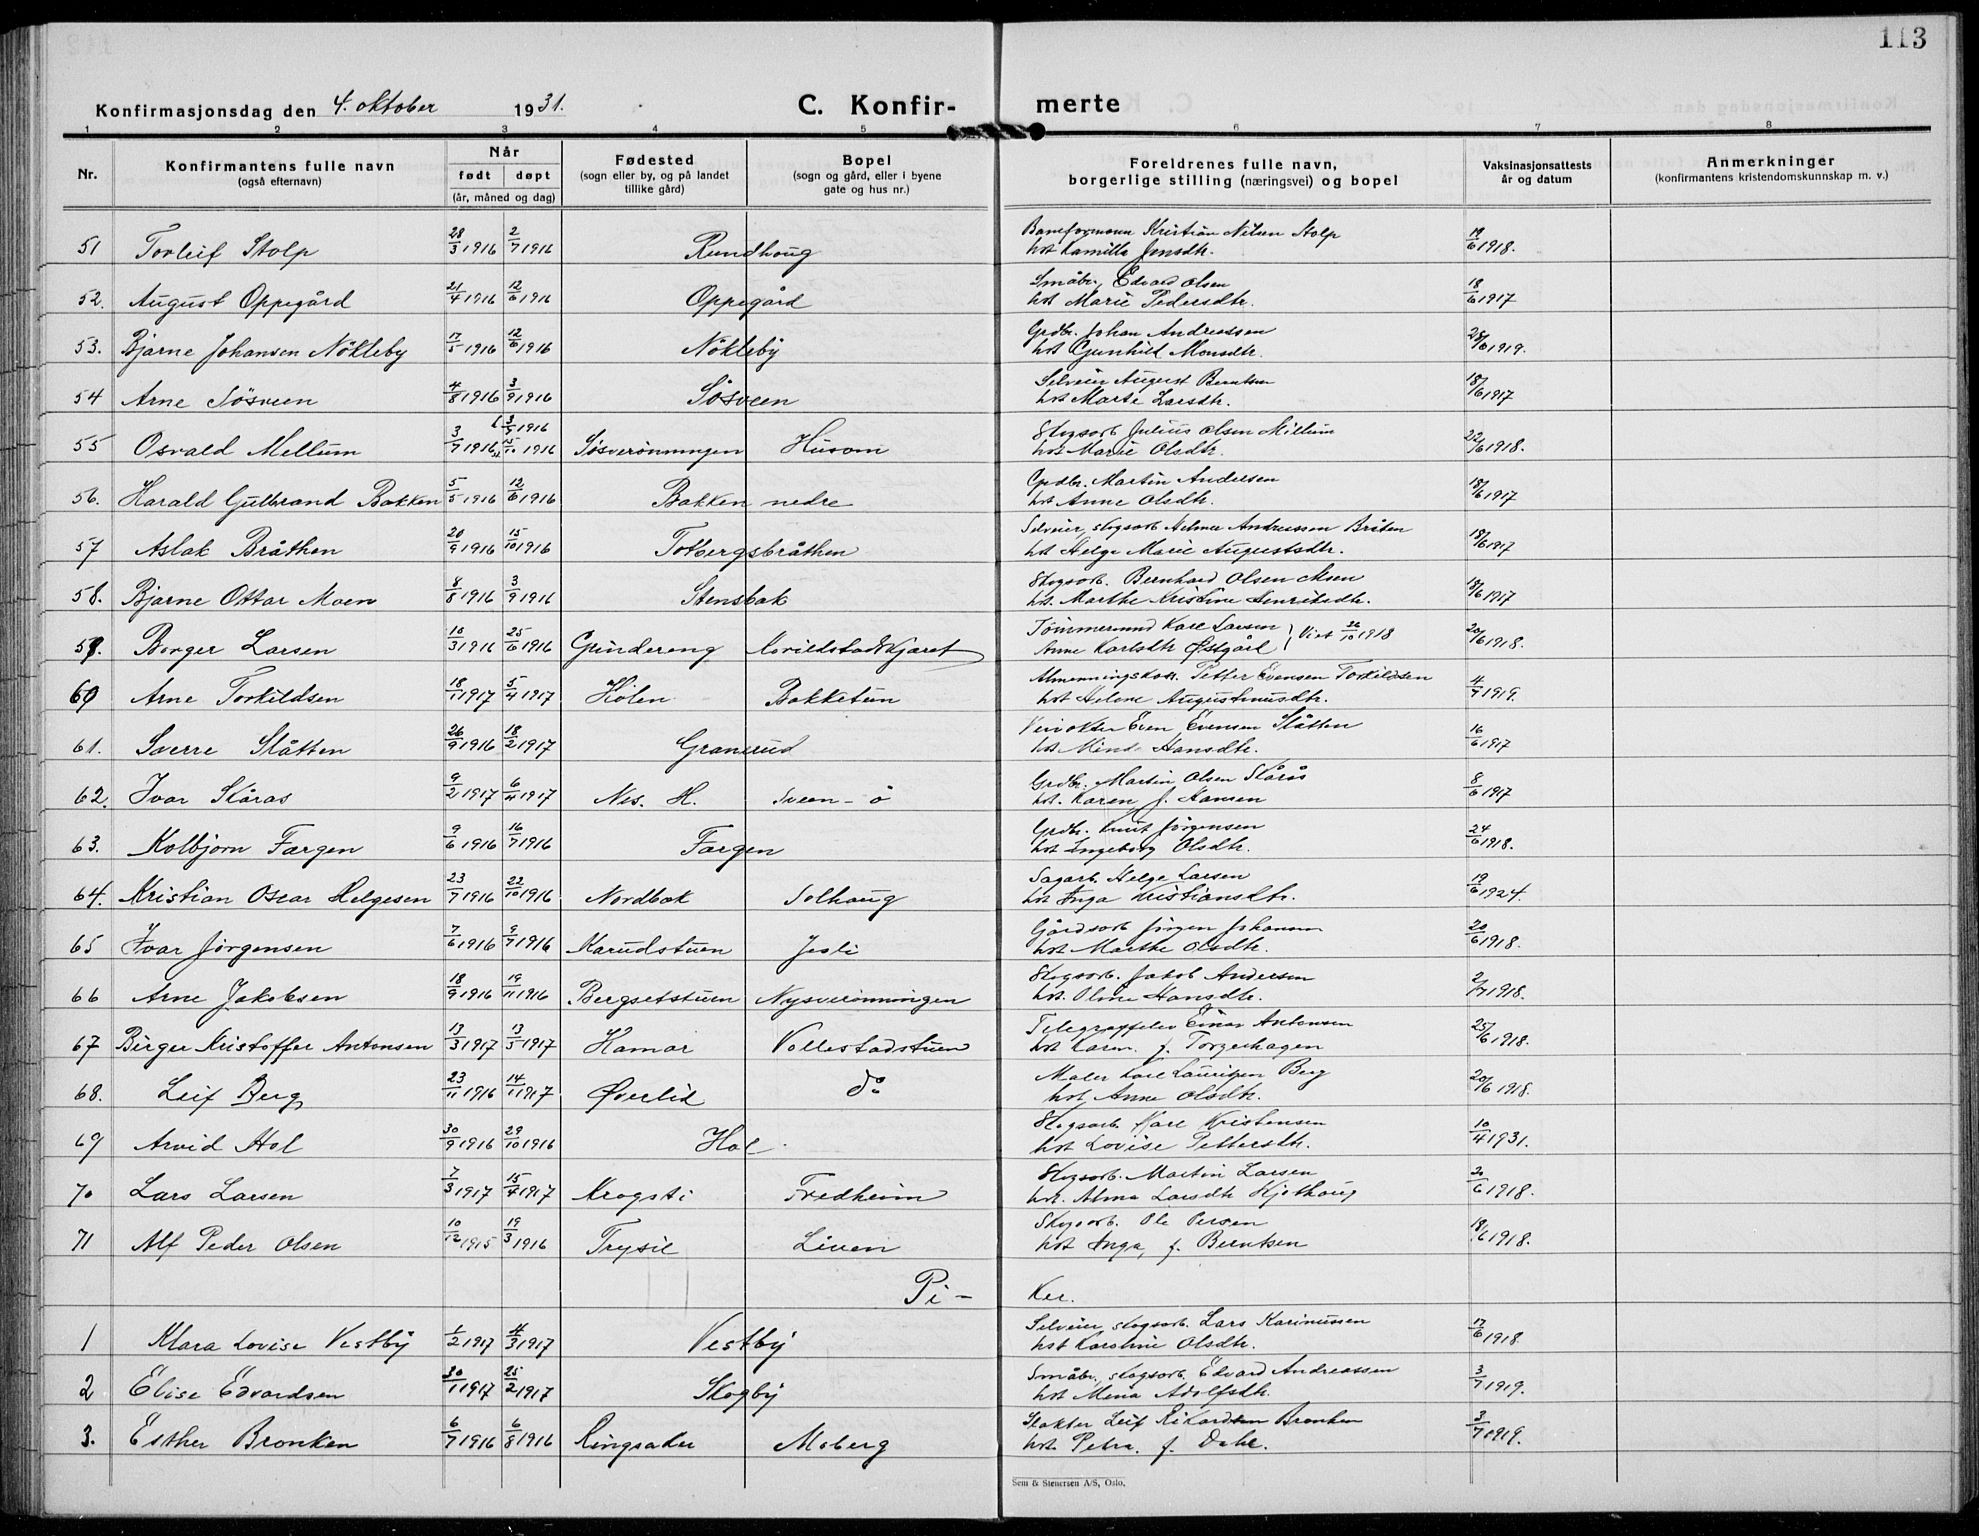 113
Konfirmasjonsdag den 4. oktober 1931.
C. Konfir-
merte
1 2 3 4 5 6 7 8
Nr.
Konfirmantens fulle navn
(også efternavn)
Når
født døpt
(år, måned og dag)
Fødested
(sogn eller by, og på landet
tillike gård)
Bopel
(sogn og gård, eller i byene
gate og hus nr.)
Foreldrenes fulle navn,
borgerlige stilling (næringsvei) og bopel
Vaksinasjonsattests
år og datum
Anmerkninger
(konfirmantens kristendomskunnskap m. v.)
51 Torleif Stolp 28/3 1916 2/7 1916 Rundhoug Baneformann Kristian Nilsen Stolp
hst Kamilla Jensdtr. 19/6 1918.
52. August Oppegård 21/4 1916 12/6 1916 Oppegård Småbr. Edvard Olsen
hst Marie Pedersdtr. 18/6 1917
53. Bjarne Johansen Nökleby 17/5 1916 12/6 1916 Nökleby Grdbr. Johan Andreassen
hst Gunhild Monsdtr. 28/6 1919.
54 Arne Sösveen 4/8 1916 3/9 1916 Sösveen Selveier August Berntsen
hst Marte Larsdtr. 18/6 1917
55 Osvald Mellum 3/7 1916 1916 Sösverönningen Husom Skogsarb Julius Olsen Millum
hst Marie Olsdtr. 22/6 1918.
56. Harald Gulbrand Bakken 5/5 1916 12/6 1916 Bakken nedre Grdbr. Martin Andersen
hst Anne Olsdtr. 18/6 1917
57 Aslak Bråthen 20/9 1916 15/10 1916 Totbergsbråthen Selveier, skogsarb Helmer Andreassen Bråten
hst Helga Marie Augustsdtr. 18/6 1917
58. Bjarne Ottar Moen 8/8 1916 3/9 1916 Stensbak Skogsarb. Bernhard Olsen Moen
hst. Marthe Kristine Henriksdtr. 18/6 1917
59. Borger Larsen 16/3 1916 25/6 1916 Grindereng Tömmermand Karl Larsen
Anne Karlsdtr Østgård } Viet 26/10 1918 20/6 1918.
60 Arne Torkildsen 18/1 1917 5/4 1917 Holen Bakketun Petter Evensen Torkildsen
hst Helene Augustinusdtr. 4/7 1919.
61. Sverre Slåtten 26/9 1916 18/2 1917 Granerud Veivokter Even Evensen Slåtten
hst Mina Hansdtr. 16/6 1917
62. Ivar Skåras 9/2 1917 6/4 1917 Nes. H. Sveen - ö Grdbr. Martin Olsen Skårås
hst. Karen f. Hansen 8/6 1917
63. Kolbjörn Fargen 9/6 1916 16/7 1916 Fargen Grdbr. Knut Jörgensen
hst Ingeborg Olsdtr. 24/6 1918.
64. Kristian Oscar Helgesen 23/7 1916 22/10 1916 Nordbak Solhaug Sagarb. Helge Larsen
hst Inga Kristiansdtr. 19/6 1924.
65 Ivar Jörgensen 7/6 1916 9/7 1916 Karudstuen Jesli Gårdsarb Jörgen Johansen
hst Marthe Olsdtr. 20/6 1918.
66 Arne Jakobsen 18/9 1916 19/11 1916 Bergsetstuen Nysverönningen Skogsarb. Jakob Andersen
hst. Oline Hansdtr. 2/7 1918.
67 Birger Kristoffer Antonsen 13/3 1917 13/5 1917 Hamar Vollestadstuen Einar Antonsen
hst Karen f. Torgerhagen 25/6 1918.
68. Leif Berg 23/11 1916 14/1 1917 Øverlid do Maler Karl Lauritzen Berg
hst, Anne Olsdtr. 20/6 1918.
69 Arvid Hol 30/9 1916 29/10 1916 Hol Skogsarb Kare Kristensen
hst Lovise Pettersdtr. 10/4 1931.
70 Lars Larsen 7/3 1917 15/4 1917 Krogsti Fredheim Skogsarb. Martin Larsen
hst. Alma Larsdtr Hjethaug 20/6 1918.
71 Alf Peder Olsen 10/12 1915 19/3 1916 Trysil Lieven Skogsarb. Ole Persen
hst Inga, f. Berntsen 18/6 1918.
Pi- ker.
1 Klara Lovise Vestby 1/2 1917 4/3 1917 Vestby Selveier, skogsarb. Lars Karinussen
hst Karoline Olsdtr. 17/6 1918.
2 Elise Edvardsen 30/1 1917 25/2 1917 Skogby Småbr., skogsarb. Edvard Andreassen
hst Mina Adolfsdtr. 3/7 1919.
3. Esther Bronken 6/7 1916 6/8 1916 Ringsaker Moberg Slakter Leif Rikardsen Bronken
hst Petra. f. Dahl. 3/7 1919.
Sem & Stenersen A/S, Oslo.